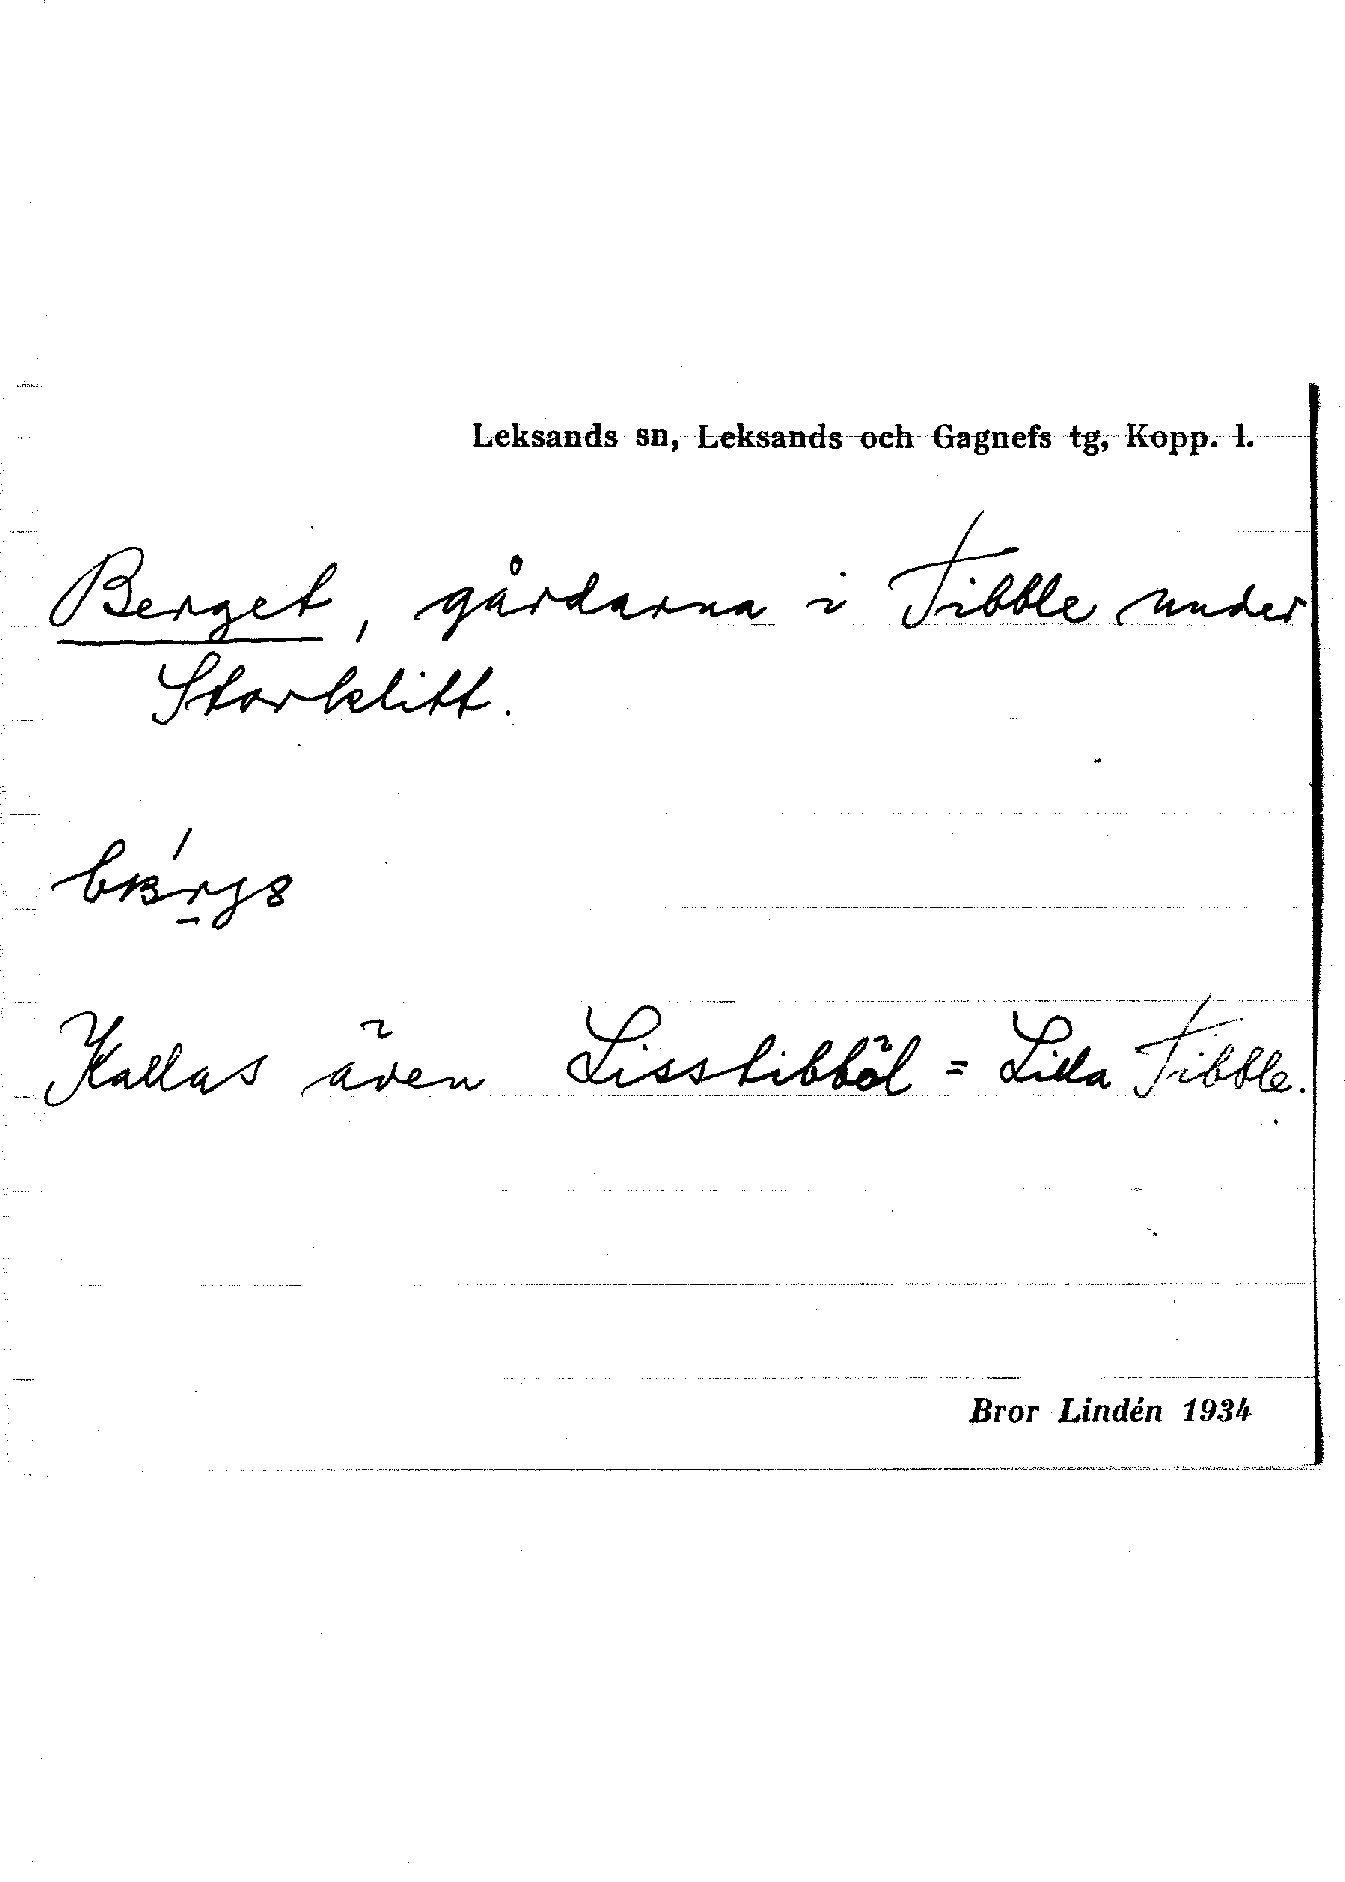 Leksands sn, Leksands och Gagnefs tg, Kopp. l.
Berget, gårdarna i Tibble under
Storklitt.
Kallas även Lisstibböl = Lilla Tibble.
Bror Lindén 1934